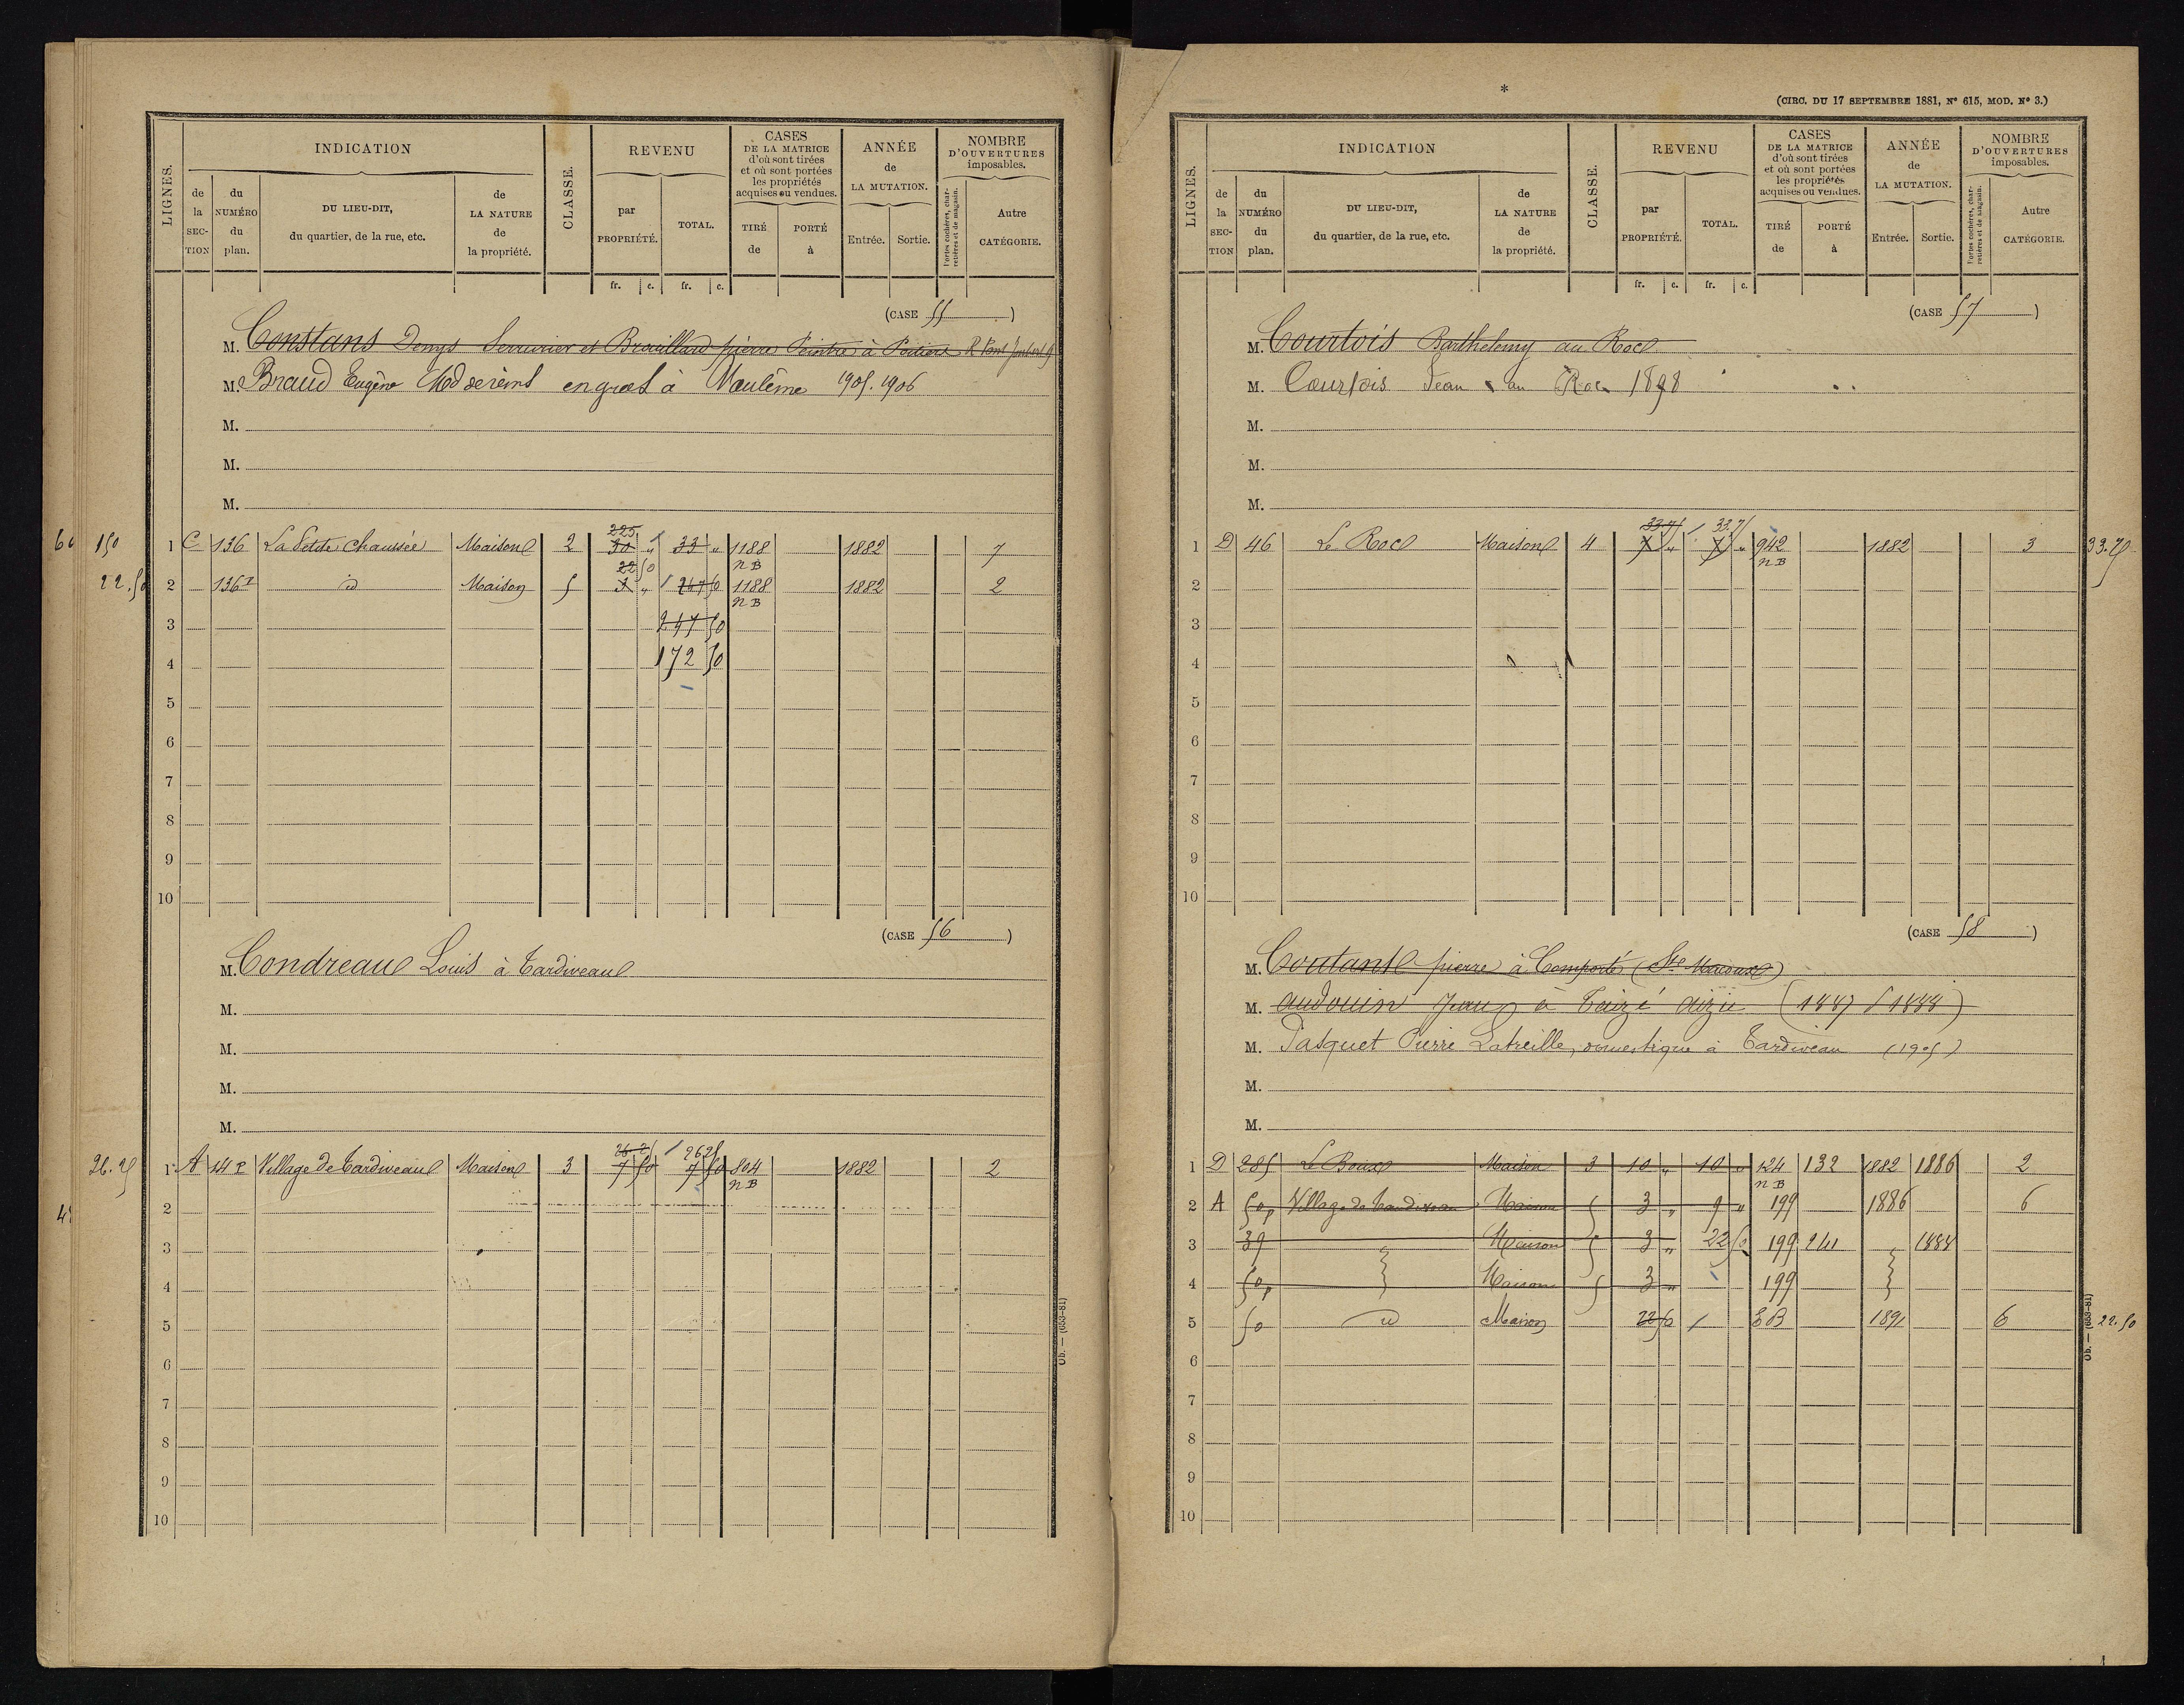 LIGNES.
INDICATION
de la SECTION
du NUMÉRO du plan.
DU LIEU-DIT, du quartier, de la rue, etc.
de LA NATURE de la propriété.
CLASSE.
REVENU
par PROPRIÉTÉ.
TOTAL.
CASES DE LA MATRICE d'où sont tirées et où sont portées les propriétés acquises ou vendues.
TIRÉ de
PORTÉ à
ANNÉE de LA MUTATION.
Entrée.
Sortie.
NOMBRE D'OUVERTURES imposables.
Portes cochères, charretières et de magasin.
Autre CATÉGORIE.
fr. c. fr. c.
(CASE 55)
M. Constans Denys Serrurier et Brouillard pierre Peintre à Poitiers R. Pont Joubert 9
M. Braud Eugène engrais à Moulême 1905.1906
M.
M.
M.
60 150
225
1 C 136 La Petite Chaussée Maison 2 30 " 33 " 1188 1882 7
22 50 NB
22.50 2 136 id Maison 5 3 " 50 1188 1882 2
NB
3 247 50
4 172 50
5
6
7
8
9
10
(CASE 56)
M. Condreau Louis à Tardiveau
M.
M.
M.
M.
26 25 26 25
26.25 1 A 14 P Village de Tardiveau Maison 3 7 50 7 50 804 1882 2
NB
2
3
4
5
6
7
8
9
10
Ob. — (653-81)
*
(CIRC. DU 17 SEPTEMBRE 1881, N° 615, MOD. N° 3.)
LIGNES.
INDICATION
de la SECTION
du NUMÉRO du plan.
DU LIEU-DIT, du quartier, de la rue, etc.
de LA NATURE de la propriété.
CLASSE.
REVENU
par PROPRIÉTÉ.
TOTAL.
CASES DE LA MATRICE d'où sont tirées et où sont portées les propriétés acquises ou vendues.
TIRÉ de
PORTÉ à
ANNÉE de LA MUTATION.
Entrée.
Sortie.
NOMBRE D'OUVERTURES imposables.
Portes cochères, charretières et de magasin.
Autre CATÉGORIE.
fr. c. fr. c.
(CASE 57)
M. Courtois Barthelemy au Roc
M. Courtois Jean au Roc 1898
M.
M.
M.
33.75 33.75
1 D 46 Le Roc Maison 4 7 " 7 " 942 1882 3 33.75
NB
2
3
4
5
6
7
8
9
10
(CASE 58)
M. Coutant pierre à Comporté (Ste Macoux)
M. Audouin Jean à Taizé Aizie (1887 / 1888)
M. Pasquet Pierre Latreille, domestique à Tardiveau (1905)
M.
M.
1 D 285 Le Maison 3 10 " 10 " 124 132 1882 1886 2
NB
2 A 50p Village de Tardiveau Maison 5 3 " 9 " 199 1886 6
3 39 Maison 5 3 " 22 50 199 241 1888
4 50p Maison 5 3 " 199
5 50 id Maison 22 50 1891 6 22.50
6
7
8
9
10
Ob. — (653-81)